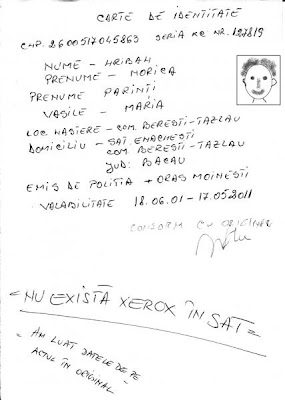 CARTE DE IDENTITATE
CNP. 2600517045863 SERIA KC NR. 127819
NUME - HRIBAH
PRENUME - MORICA
PRENUME PARINTI
VASILE - MARIA
LOC NASTERE - COM. BERESTI-TAZLAU
DOMICILIU - SAT. ENACHESTI
COM. BERESTI-TAZLAU
JUD: BACAU
EMIS DE POLITIA ORAS MOINESTI
VALABILITATE 18.06.01 - 17.05.2011
CONFORM CU ORIGINAL
= NU EXISTĂ XEROX ÎN SAT =
AM LUAT DATELE DE PE
ACTUL ÎN ORIGINAL